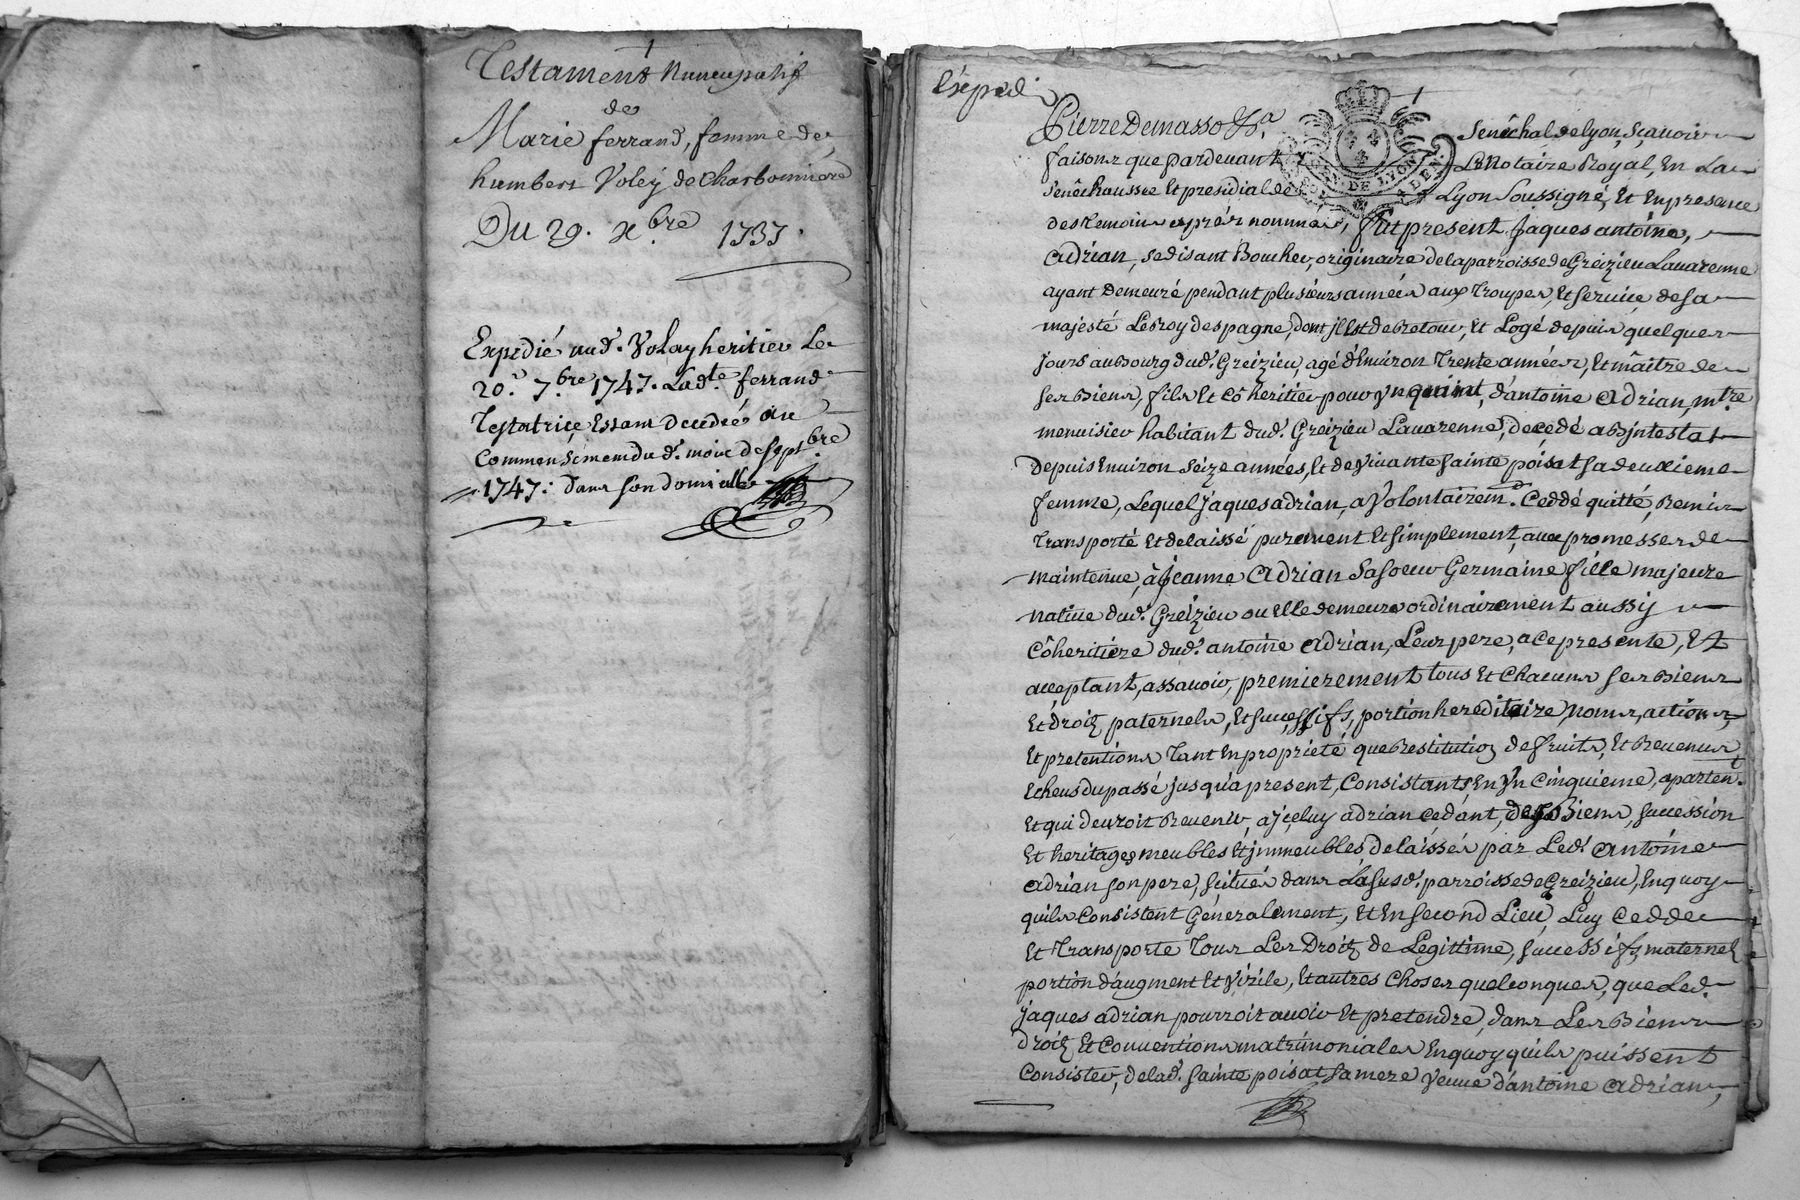 Testament Nuncupatif
de
Marie ferrand, femme de
humbert Voley de Charbonniere
Du 29. xbre 1737.
Expedié aud. Volay heritier Le
20e 7bre 1747. Ladte ferrand
Testatrice Estant Decedée au
Commensement du d. mois de Septbre
1747. dans son domicille
Expedié
Pierre Demasso Sr. Senêchal de Lyon, sçavoir
faisons que pardevant Le Notaire Royal, En La
Senêchaussée Et presidial de Lyon Soussigné, Et En presance
des temoins aprés nommés, fut present Jaques antoine
adrian, se disant Boucher, originaire de la parroisse de Greizieu Lavarenne
ayant Demeuré pendant plusieurs années aux troupes, Et service de sa
majesté Le Roy despagne, dont jl Est de Retour, Et Logé depuis quelques
jours au Bourg dud. Greizieu, agé d'Environ trente années, Et maître de
ses Biens, fils Et Côheritier pour yn quint, d'antoine adrian, mtre
menuisier habitant dud. Greizieu Lavarenne, decedé abjntestat
depuis Environ seize années, Et de vivante Sainte poisat sa deuxieme
femme, Lequel jaques adrian, a Volontairemt. Ceddé quitté, Remis
transporté Et delaissé purement Et simplement, avec promesses de
maintenue, à Jeanne adrian sa soeur Germaine fille majeure
native dud. Greizieu ou Elle demeure ordinairement aussy
Côheritiere dud. antoine adrian, Leur pere, a ce presente, Et
acceptant, assavoir, premierement tous Et Chacuns ses Biens
Et droitz paternels, Et successifs, portion hereditaire, noms, actions,
Et pretentions tant En propriété que Restitution de fruits, Et Revenus
Echeus du passé jusqu'a present, Consistants En yn Cinquieme, apartent.
Et qui devroit Revenir, a jceluy adrian cedant, des Biens, succession
Et heritages meubles Et jmmeubles delaissés par Led. antoine
adrian son pere, scitués dans La susd. parroisse de Greizieu, En quoy
quils Consistent Généralement, Et En second Lieu, Luy cedde
Et transporte tous Les Droitz de Legittime, successifs maternel
portion d'augment Et Virile, Et autres Choses quelconques, que Led.
jaques adrian pourroit avoir Et pretendre, dans Les Biens
droitz Et Conventions matrimoniales En quoy quils puissent
Consister, de lad. Sainte poisat sa mere Veuve d'antoine adrian,